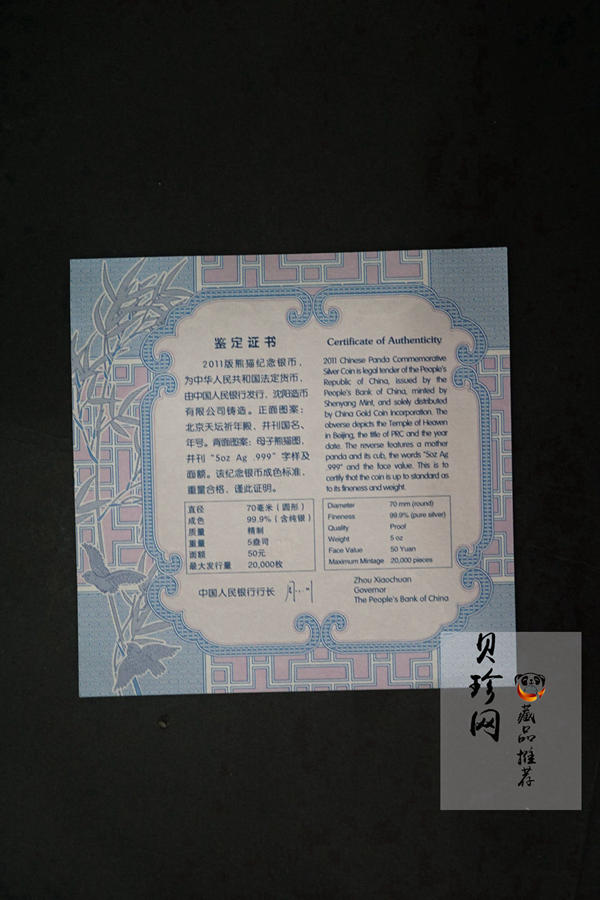 鉴定证书
2011版熊猫纪念银币，
为中华人民共和国法定货币，
由中国人民银行发行，沈阳造币
有限公司铸造。正面图案：
北京天坛祈年殿，并刊国名、
年号。背面图案：母子熊猫图，
并刊“5oz Ag .999”字样及
面额。该纪念银币成色标准，
重量合格，谨此证明。
直径 70毫米（圆形）
成色 99.9%（含纯银）
质量 精制
重量 5盎司
面额 50元
最大发行量 20,000枚
中国人民银行行长
Certificate of Authenticity
2011 Chinese Panda Commemorative
Silver Coin is legal tender of the People's
Republic of China, issued by the
People's Bank of China, minted by
Shenyang Mint, and solely distributed
by China Gold Coin Incorporation. The
obverse depicts the Temple of Heaven
in Beijing, the title of PRC and the year
date. The reverse features a mother
panda and its cub, the words "5oz Ag
.999" and the face value. This is to
certify that the coin is up to standard as
to its fineness and weight.
Diameter 70 mm (round)
Fineness 99.9% (pure silver)
Quality Proof
Weight 5 oz
Face Value 50 Yuan
Maximum Mintage 20,000 pieces
Zhou Xiaochuan
Governor
The People's Bank of China
贝珍网
藏品推荐